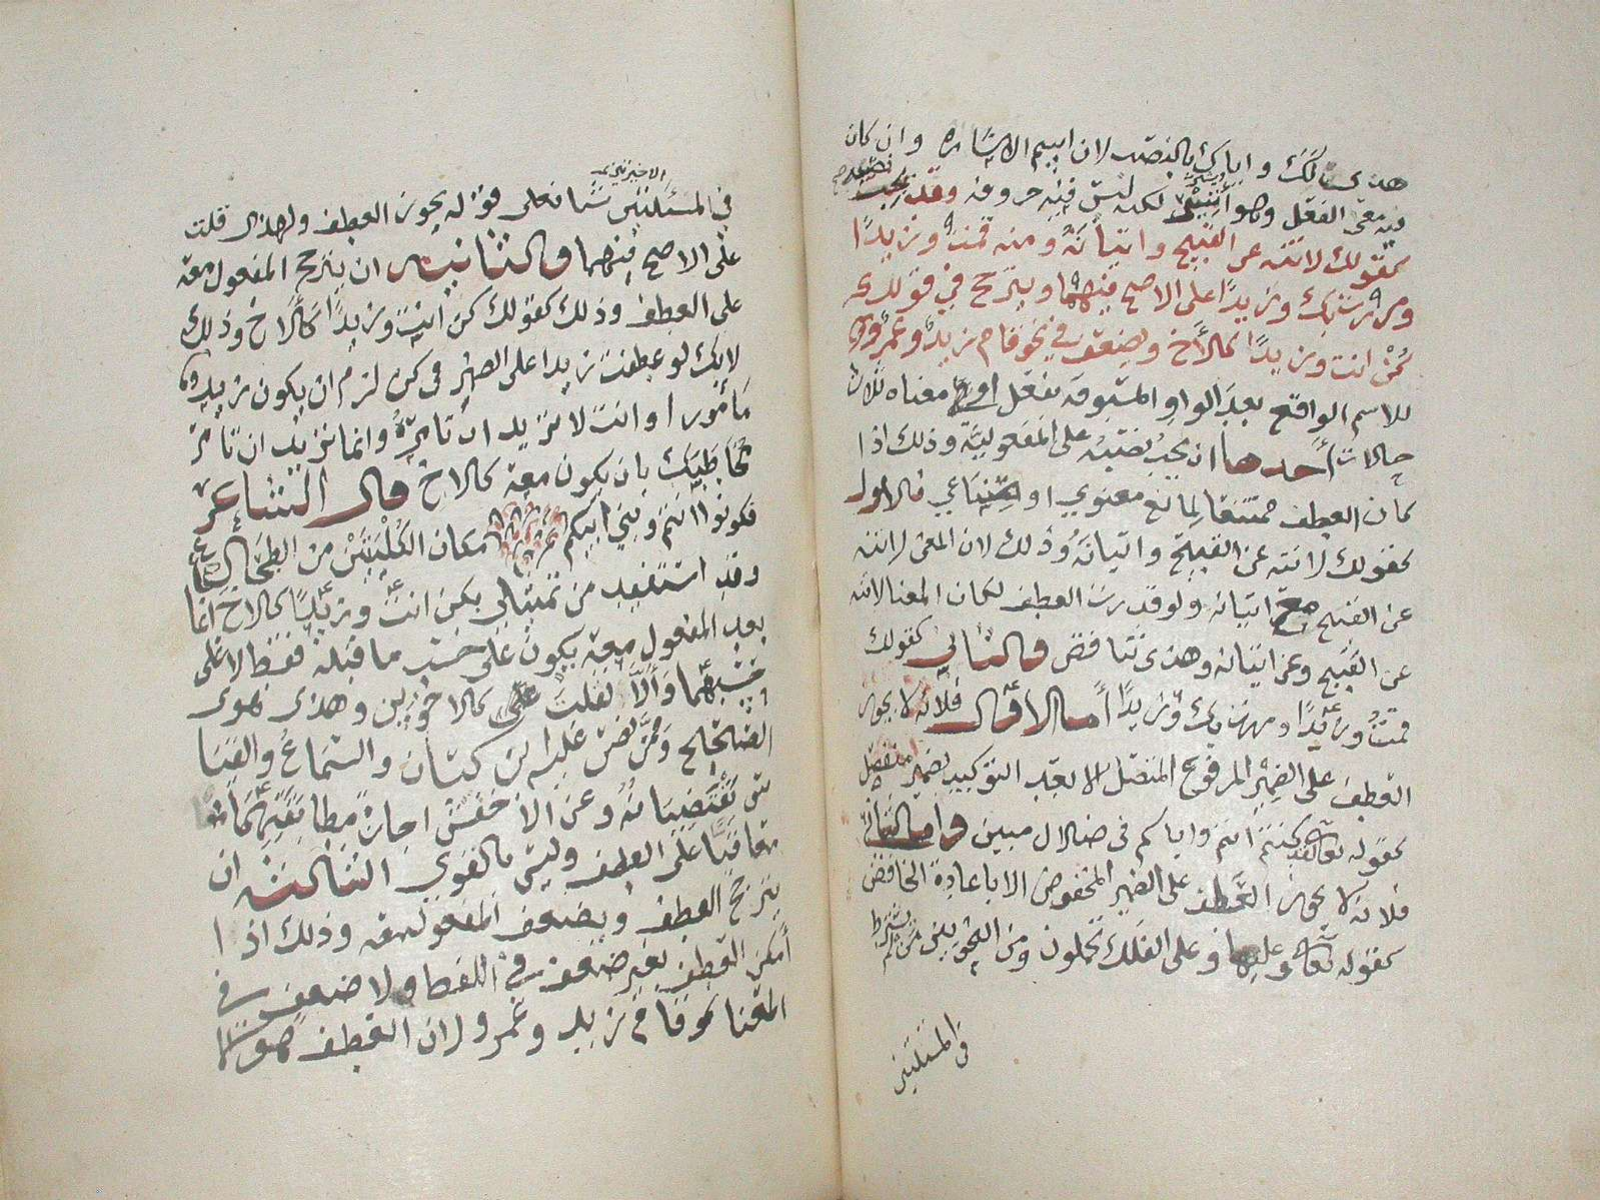 هذى لك واباك بالنصب لان اسم الاشارة وان كان
فيه معنى الفعل وهو اشير لكنه ليس فيه حروفه وقد يجب
كقولك لا تنه عن القبيح واتيانه ومنه قمت وزيدًا
ومررت بك وزيدًا على الاصح فيهما ويترجح في قولك
كن انت وزيدًا كالأخ ويضعف في نحو قام زيد وعمرو
للاسم الواقع بعد الواو المسبوقه بفعل او معناه ثلاث
حالات أحدها ان يجب نصبه على المفعولية وذلك اذا
كان العطف ممتنعا لمانع معنوي او صناعي فالاول
كقولك لا تنه عن القبيح واتيانه وذلك لان المعنى لا تنه
عن القبيح مع اتيانه ولو قدرت العطف لكان المعنا لا تنه
عن القبيح وعن اتيانه وهذى تناقض والثاني كقولك
قمت وزيدًا ومررت بك وزيدًا أما الاول فلانه لا يجوز
العطف على الضمير المرفوع المتصل الا بعد التوكيد بضمير منفصل
كقوله تعالى لقد كنتم انتم واباكم في ضلال مبين واما الثاني
فلانه لا يجوز العطف على الضمير المخفوض الا باعادة الخافض
كقوله تعالى وعليها وعلى الفلك تحملون ومن النحويين من لم يشترط
في المسئلتين
الاخيرتين
في المسئلتين شيا فعلى قوله يجوز العطف ولهذا قلت
على الاصح فيهما والثانيه ان يترجح المفعول معه
على العطف وذلك كقولك كن انت وزيدًا كالاخ وذلك
لانك لو عطفت زيدا على الضمير في كن لزم ان يكون زيد
مأمورا وانت لا تريد ان تامره وانما تريد ان تامر
مخاطبك بان يكون معه كالاخ قال الشاعر
فكونوا انتم وبني ابيكم مكان الكليتين من الطحال
وقد استفيد من تمثيلي بكن انت وزيدًا كالاخ ان ما
بعد المفعول معه يكون على حسب ما قبله فقط لا على
حسبهما والا لقلت كالاخوين وهذى هو
الصحيح وممن نص عليه ابن كيسان والسماع والقيا
س يقتضيانه وعن الاخفش اجازة مطابقتهما
قياسًا على العطف وليس بالقوي الثالثه ان
يترجح العطف ويضعف المفعول معه وذلك اذا
أمكن العطف بغير ضعف في اللفظ ولا ضعف في
المعنا نحو قام زيد وعمرو لان العطف هو